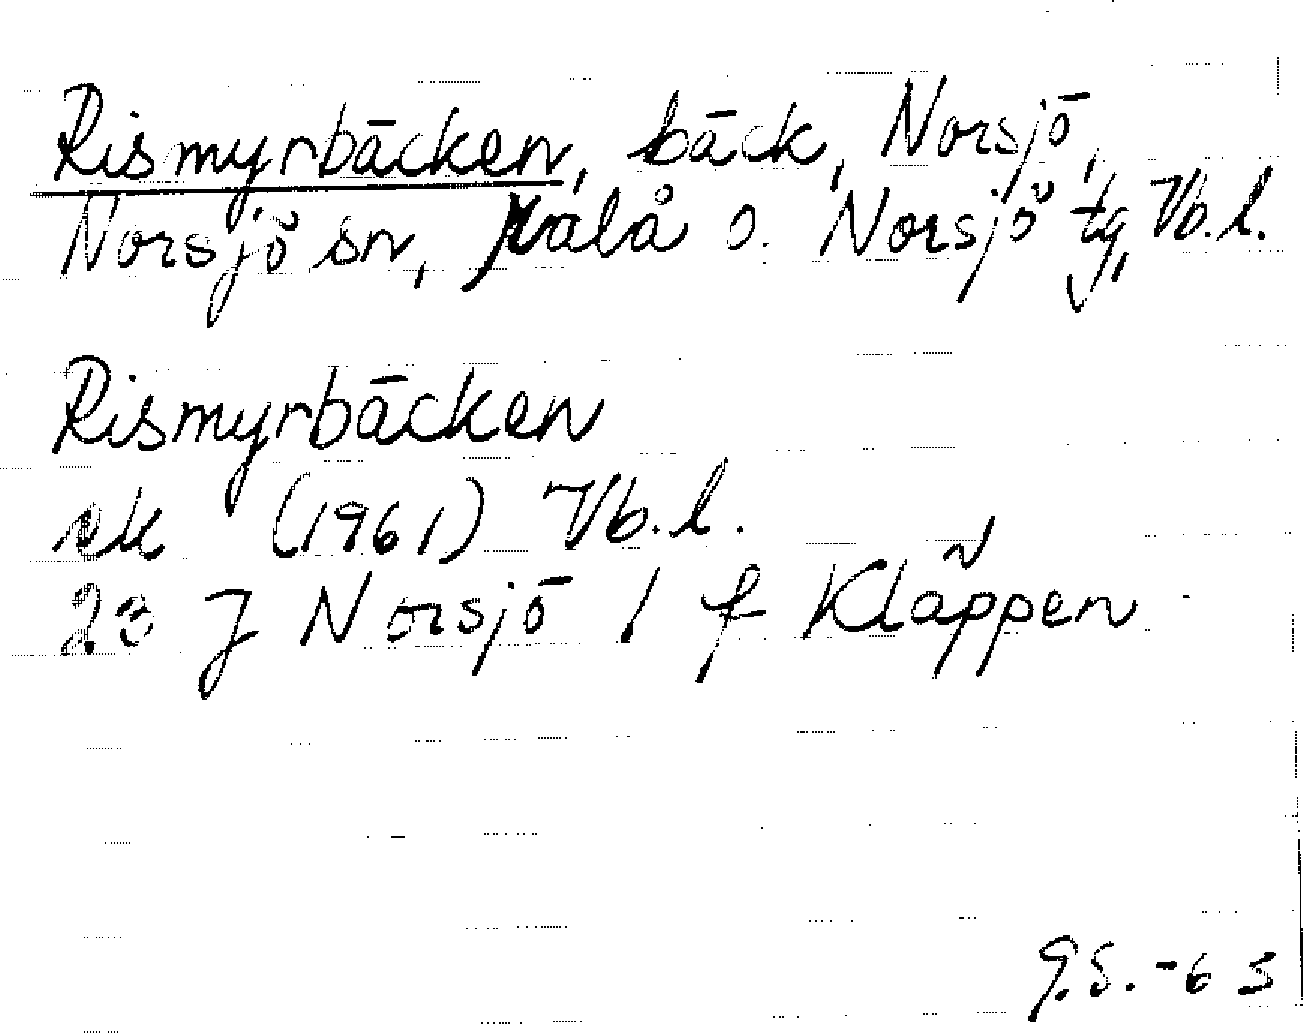 Rismyrbäcken, bäck, Norsjö,
Norsjö sn, Malå o. Norsjö tg, Vb. l.
Rismyrbäcken
ek (1961) Vb. l.
23 J Norsjö 1 f Kläppen
G.S. -63